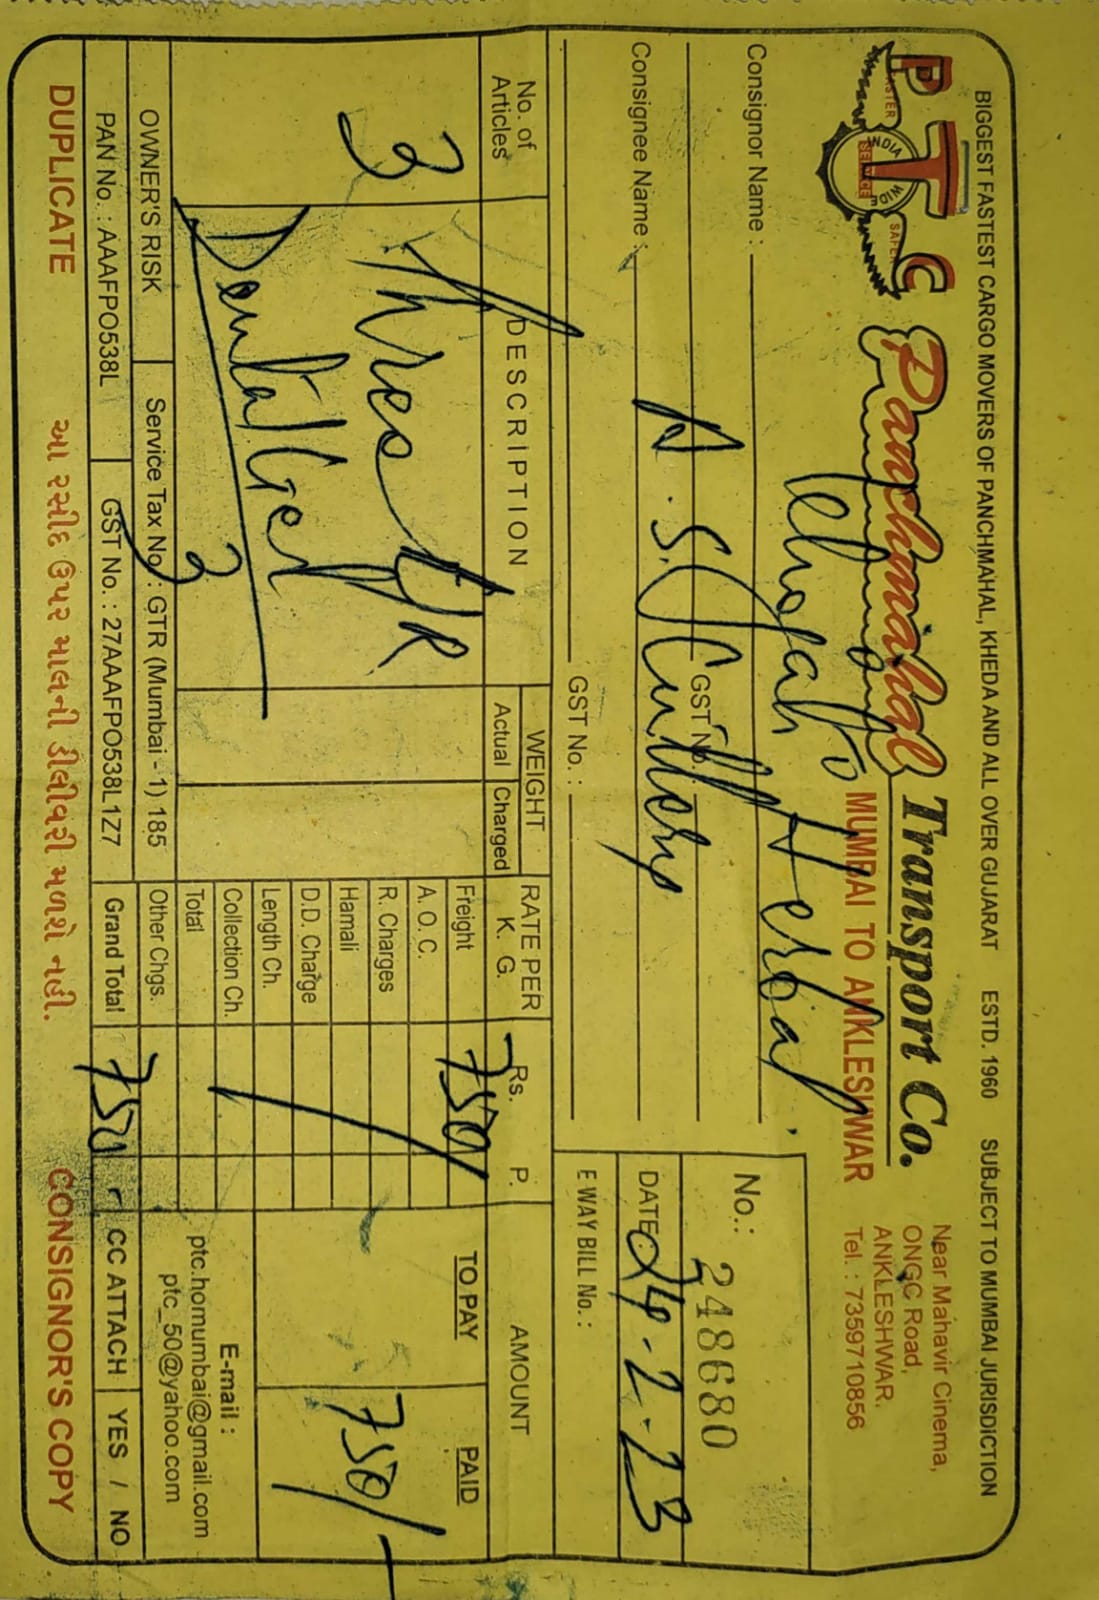 BIGGEST FASTEST CARGO MOVERS OF PANCHMAHAL, KHEDA AND ALL OVER GUJARAT ESTD. 1960 SUBJECT TO MUMBAI JURISDICTION
PTC
FASTER SAFER
INDIA WIDE
SERVICE
Panchmahal Transport Co.
MUMBAI TO ANKLESHWAR
Near Mahavir Cinema,
ONGC Road,
ANKLESHWAR.
Tel. : 7359710856
No.: 248680
Consignor Name : Herbal
GST No.
DATE 24-2-23
Consignee Name : A. S.
GST No. :
E WAY BILL No. :
No. of Articles
DESCRIPTION
WEIGHT
Actual Charged
RATE PER K. G.
Rs. P.
AMOUNT
3
Three
Dental
3
Freight 750
A. O. C.
R. Charges
Hamali
D.D. Charge
Length Ch.
Collection Ch.
Total
Other Chgs.
Grand Total 750
TO PAY PAID
750/-
E-mail :
ptc.homumbai@gmail.com
ptc_50@yahoo.com
OWNER'S RISK Service Tax No. : GTR (Mumbai - 1) 185
PAN No. : AAAFPO538L GST No. : 27AAAFPO538L1Z7
CC ATTACH YES / NO
DUPLICATE આ રસીદ ઉપર માલની ડીલીવરી મળશે નહી. CONSIGNOR'S COPY